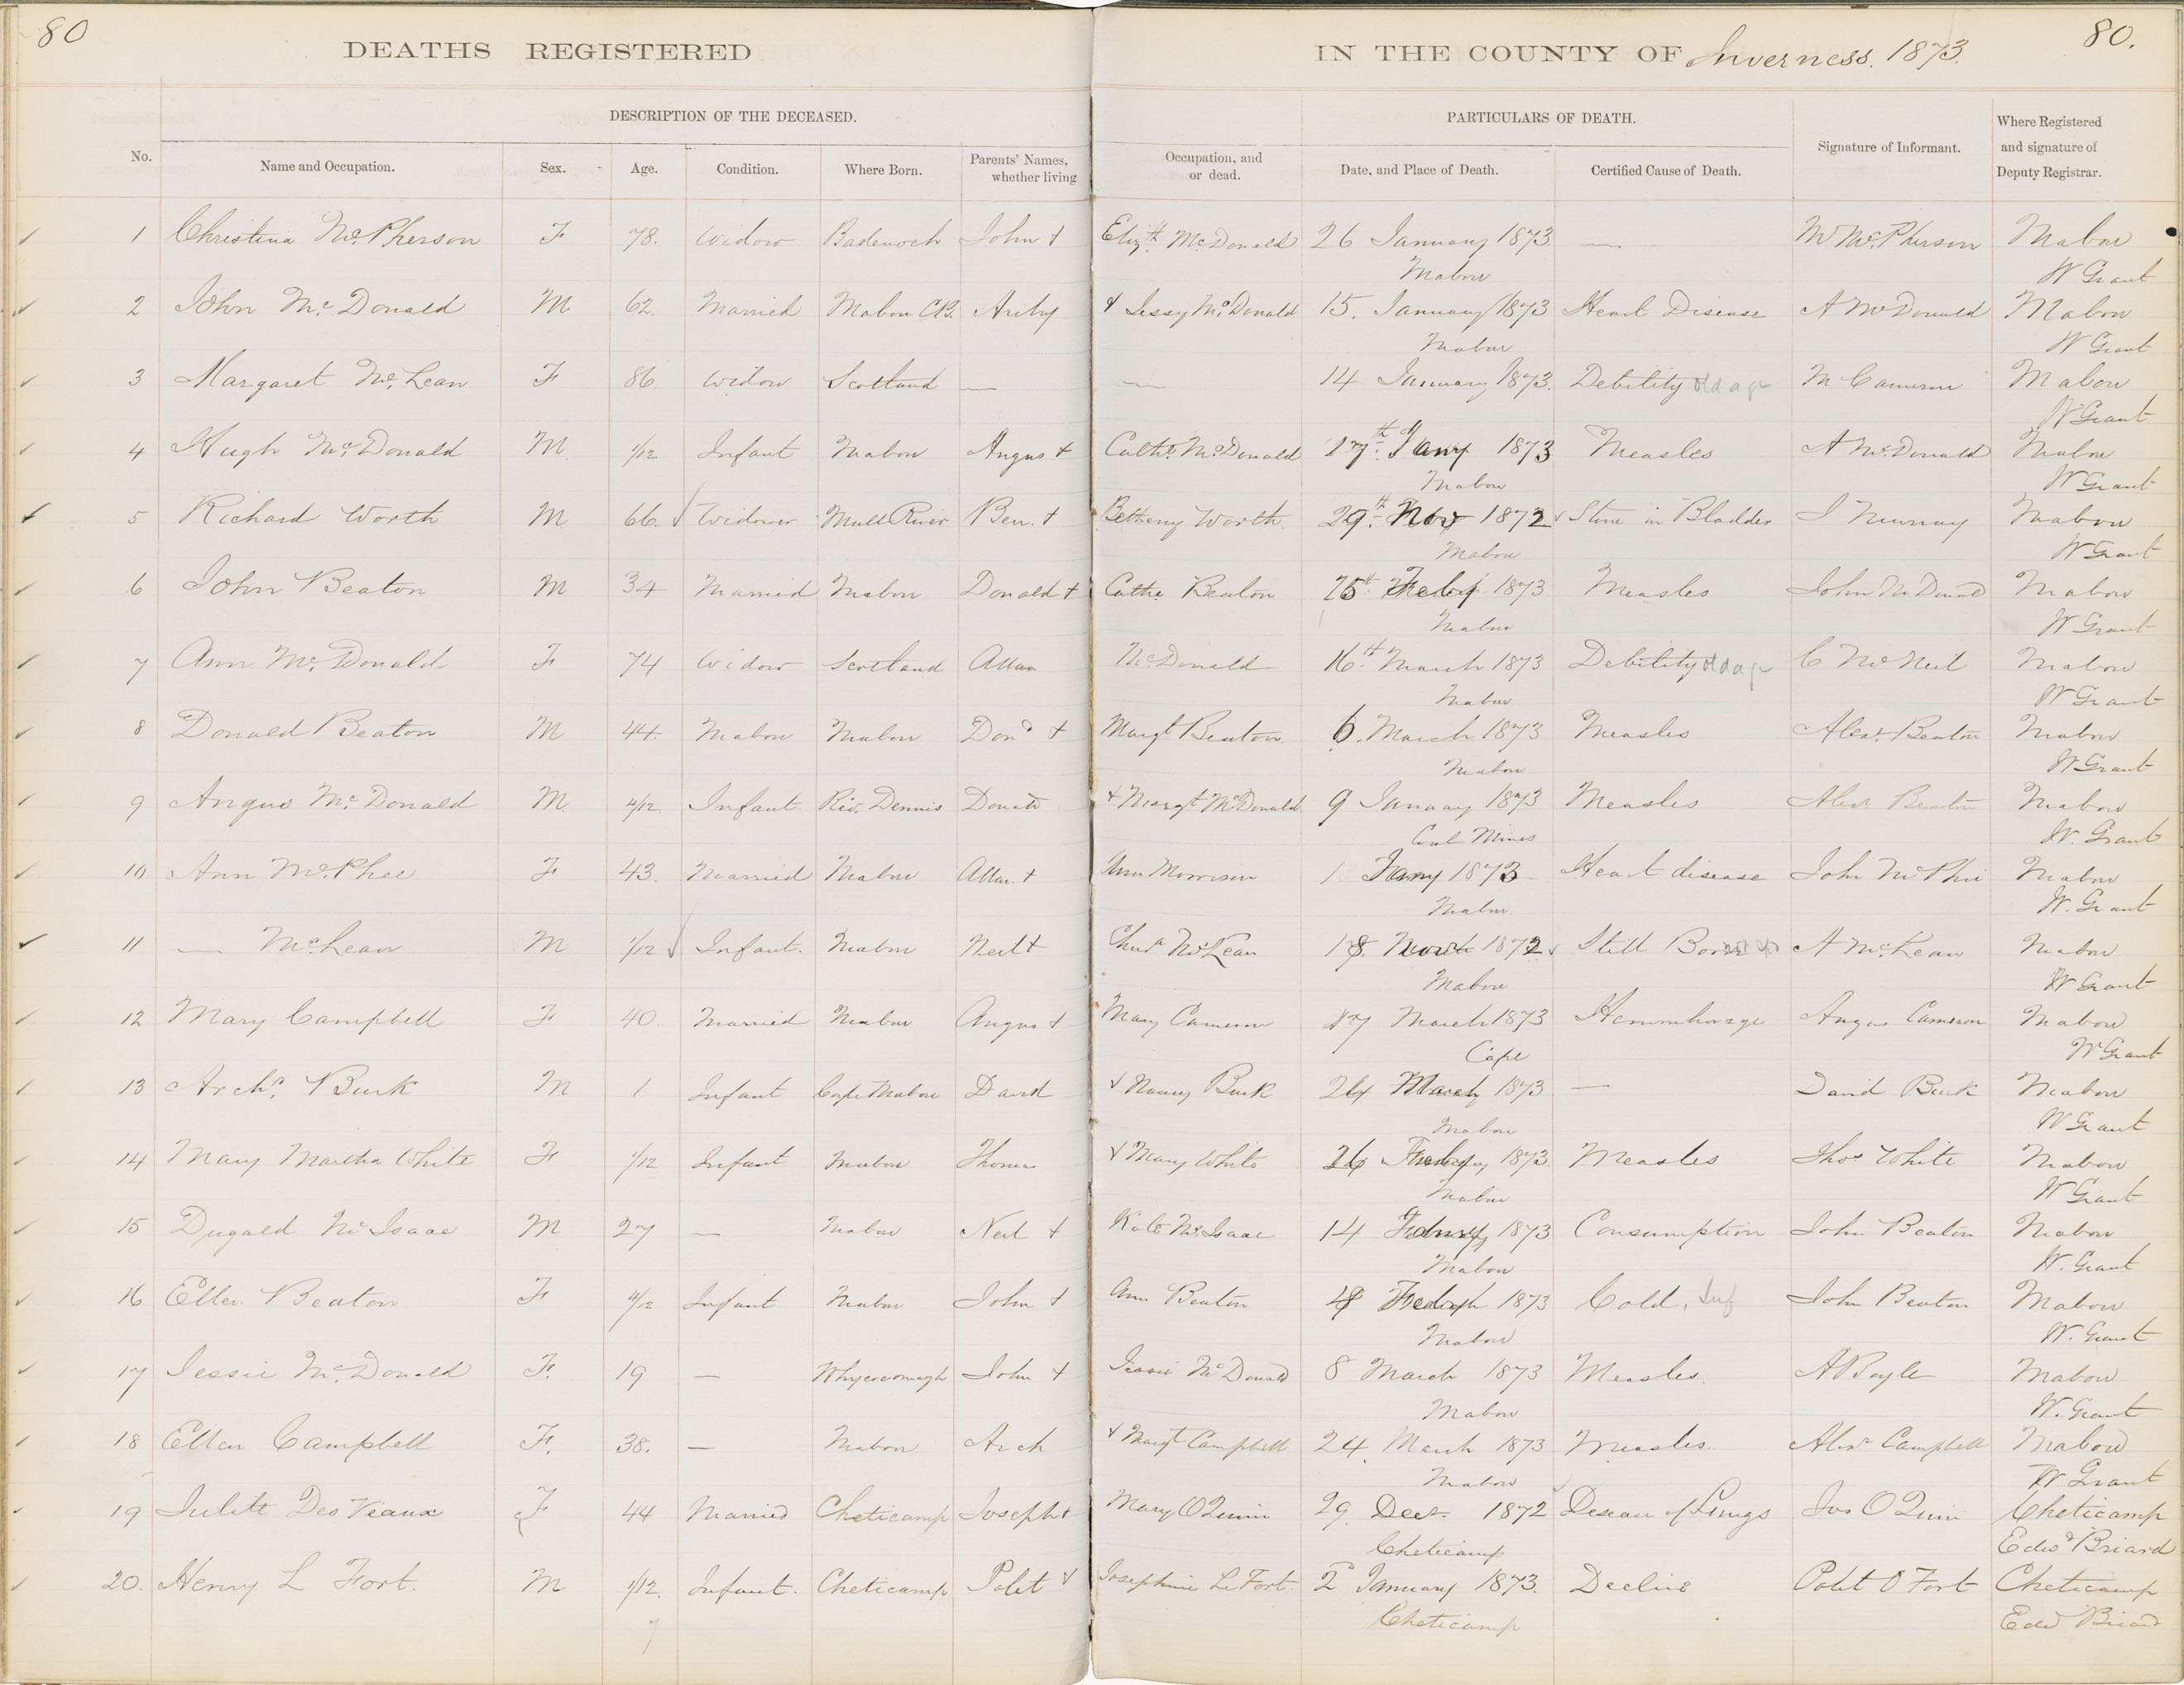 80
80.
DEATHS REGISTERED IN THE COUNTY OF Inverness. 1873.
DESCRIPTION OF THE DECEASED. PARTICULARS OF DEATH.
No. Name and Occupation. Sex. Age. Condition. Where Born. Parents' Names, whether living Occupation, and or dead. Date, and Place of Death. Certified Cause of Death. Signature of Informant. Where Registered and signature of Deputy Registrar.
1 Christina McPherson F 78. Widow Badenoch John + Elizth. McDonald 26 January 1873 — M McPherson Mabou
Mabou W Grant
2 John McDonald M 62. Married Mabou C.B. + Jessy McDonald 15. January 1873 Heart Disease A McDonald Mabou
Mabou W Grant
3 Margaret McLean F 86. Widow Scotland — — 14 January 1873. Debility old age M Cameron Mabou
W Grant
4 Hugh McDonald M 1/12 Infant Mabou Angus + Cathe. McDonald 17th Jany 1873 Measles A McDonald Mabou
Mabou W Grant
5 Richard Worth M 66. Widower Mull River Ben. + Betheny Worth 29th Nov 1872 Stone in Bladder J Murray Mabou
Mabou W Grant
6 John Beaton M 34 Married Mabou Donald + Cathe Beaton 15th Feby 1873 Measles John McDonald Mabou
Mabou W Grant
7 Ann McDonald F 74 Widow Scotland Allan McDonald 16th March 1873 Debility old age C McNeil Mabou
Mabou W Grant
8 Donald Beaton M 44. Mabou Mabou Dond + Margt Beaton 6. March 1873 Measles Alexr. Beaton Mabou
Mabou W Grant
9 Angus McDonald M 4/12 Infant Riv. Dennis Donald + Margt McDonald 9 January 1873 Measles Alexr Beaton Mabou
Coal Mines W. Grant
10 Ann McPhee F 43. Married Mabou Allan + Ann Morrison 1 Jany 1873 Heart disease John McPhee Mabou
Mabou W. Grant
11 — McLean M 1/12 Infant. Mabou Neil + McLean 18. 1872 Still Born A McLean Mabou
Mabou W Grant
12 Mary Campbell F 40. Married Mabou Angus + Mary Cameron 27 March 1873 Hemorrhage Angus Cameron Mabou
Cape W Grant
13 Archd. Burk M 1 Infant Cape Mabou David + Nancy Burk 24 March 1873 — David Burk Mabou
Mabou W Grant
14 Mary Martha White F 1/12 Infant Mabou Thomas + Mary White 26 1873 Measles Thos White Mabou
Mabou W Grant
15 Dugald McIsaac M 27 — Mabou Neil + Kate McIsaac 14 1873 Consumption John Beaton Mabou
Mabou W. Grant
16 Ellen Beaton F 4/12 Infant Mabou John + Ann Beaton 1873 Cold, Inf John Beaton Mabou
Mabou W. Grant
17 Jessie McDonald F. 19 — Whycocomagh John + Jessie McDonald 8 March 1873 Measles. A Boyle Mabou
Mabou W. Grant
18 Ellen Campbell F. 38. — Mabou Arch + Margt Campbell 24 March 1873 Measles. Alexr Campbell Mabou
Mabou W Grant
19 Julitt Des Veaux F 44 Married Cheticamp Joseph + Mary O Quinn 29 Decr. 1872 Desease of Lungs Jos O Quinn Cheticamp
Cheticamp Edwd Briard
20. Henry L Fort. M 1/12. Infant. Cheticamp Polit + Josephine Le Fort. 2d January 1873. Decline Polit O Fort Cheticamp
Cheticamp Edwd Briard